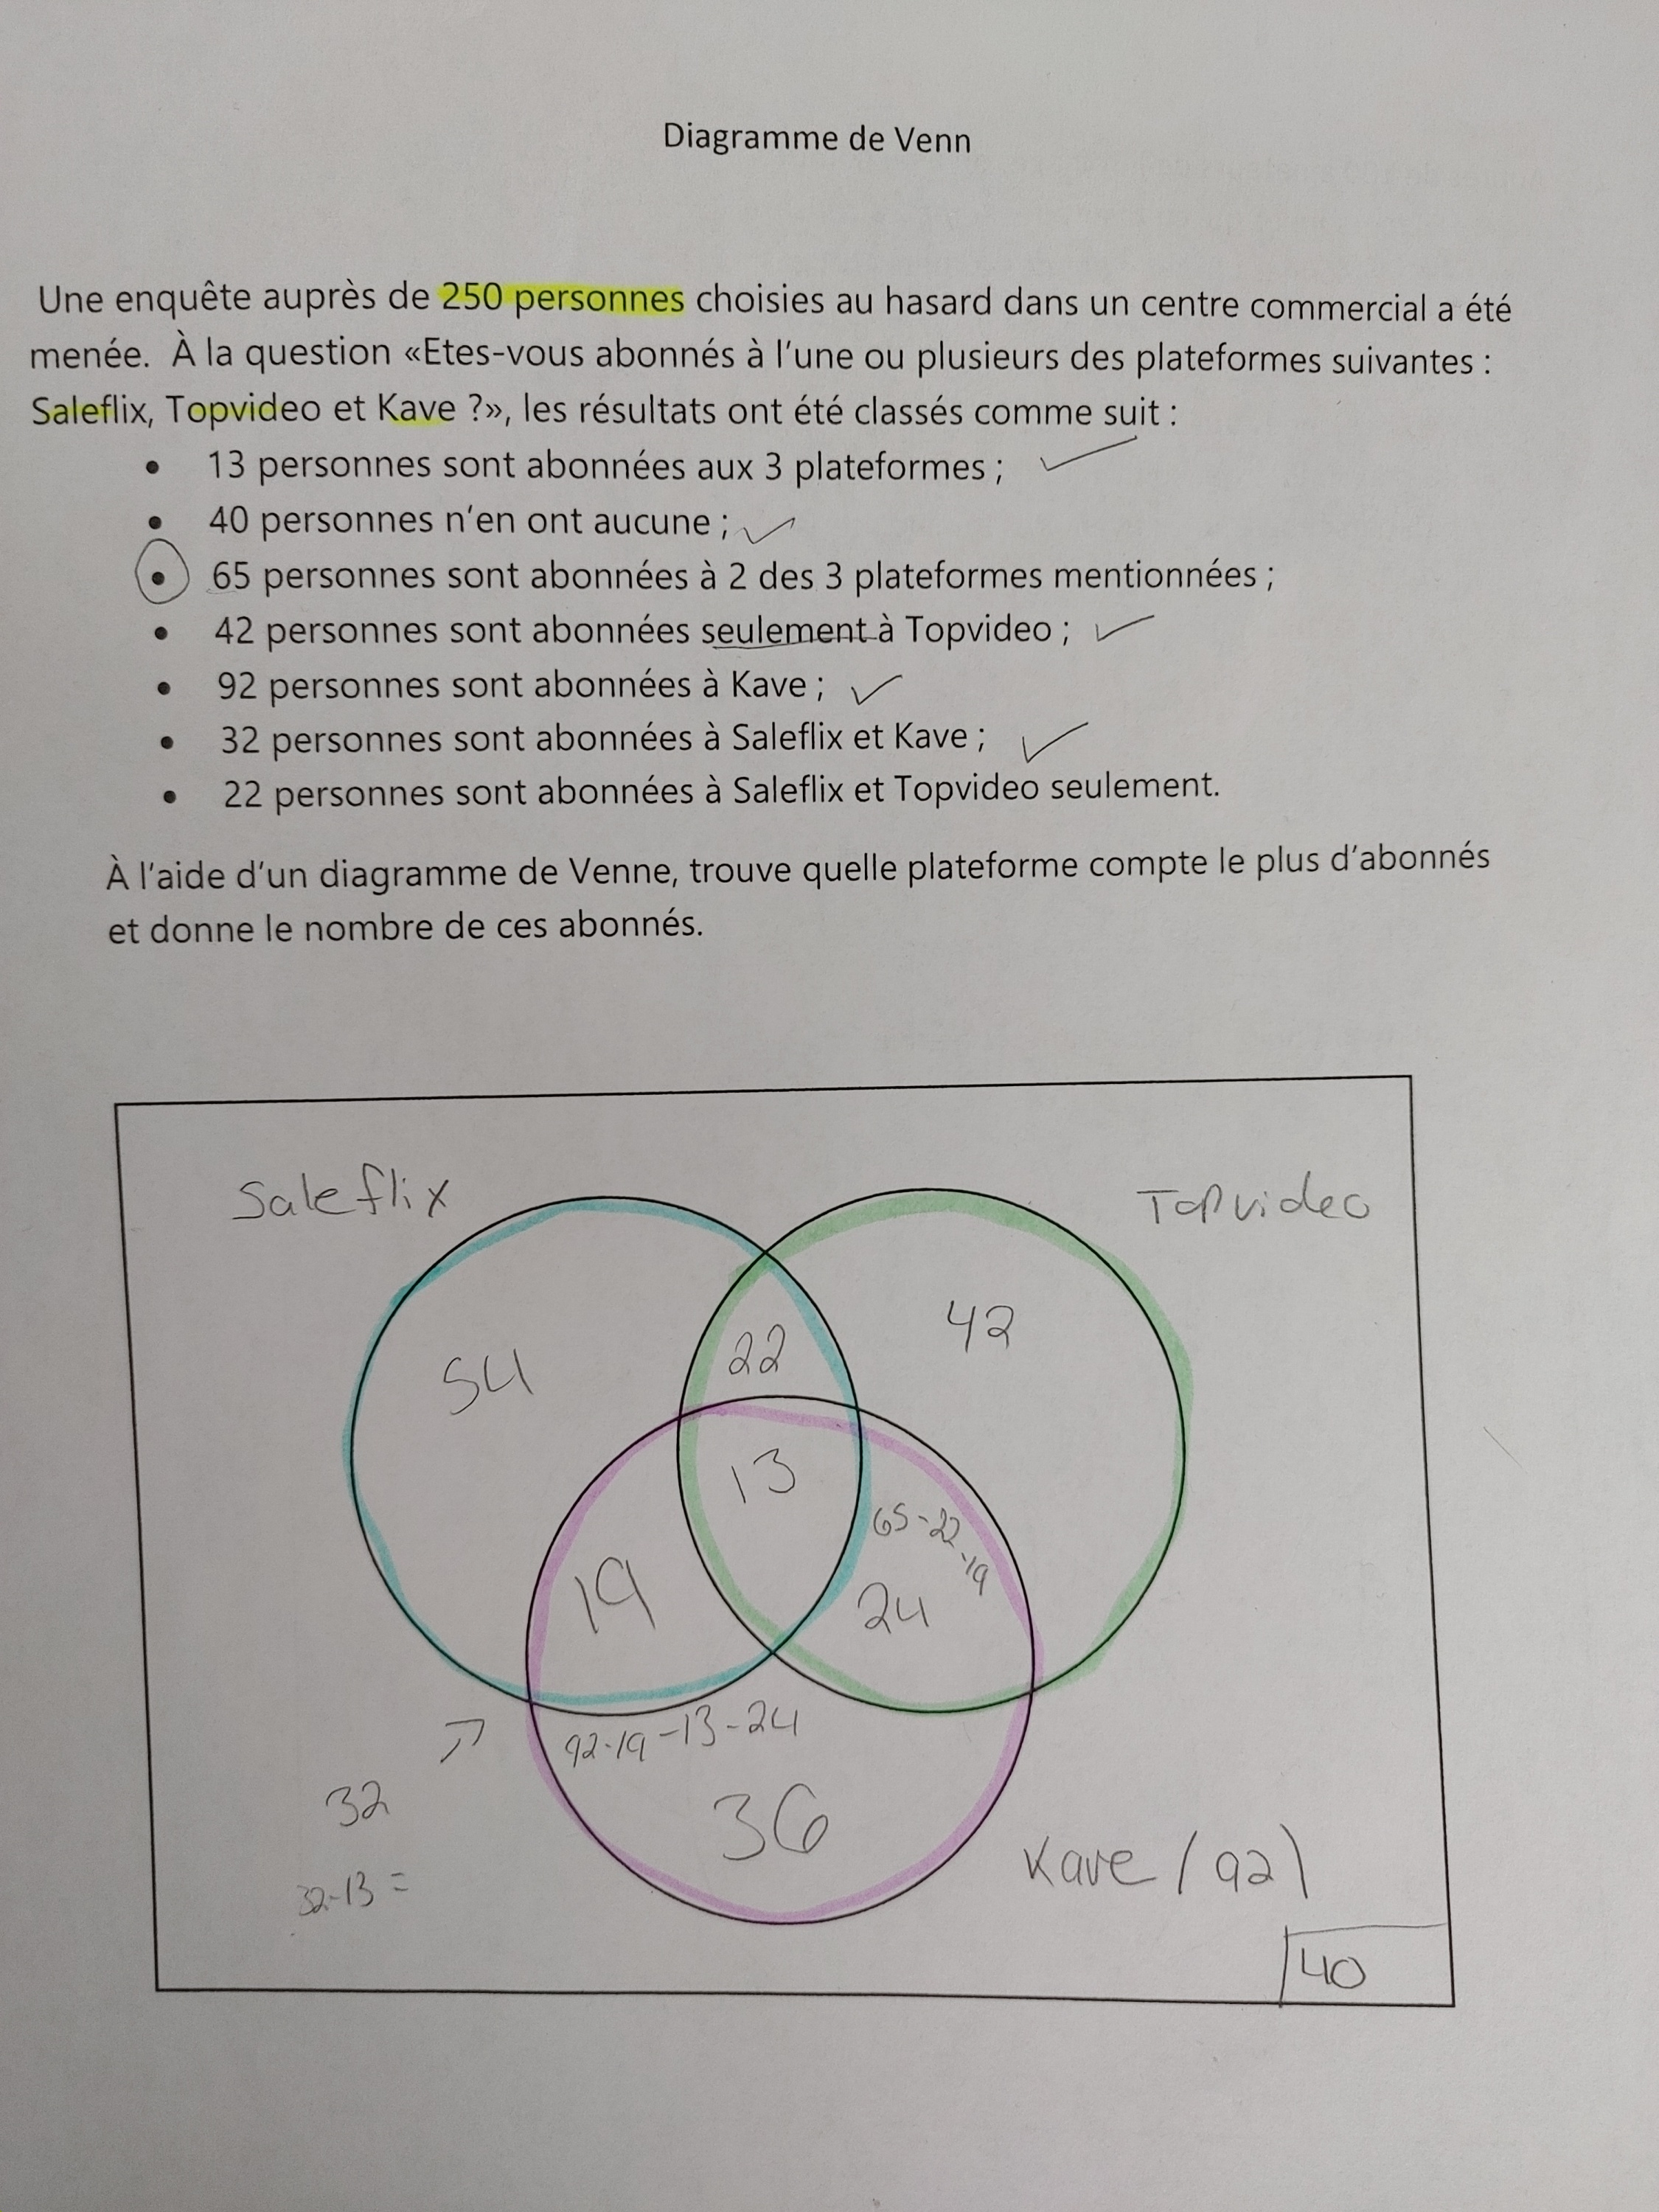 Diagramme de Venn
Une enquête auprès de 250 personnes choisies au hasard dans un centre commercial a été
menée. À la question «Etes-vous abonnés à l'une ou plusieurs des plateformes suivantes :
Saleflix, Topvideo et Kave ?», les résultats ont été classés comme suit :
• 13 personnes sont abonnées aux 3 plateformes ;
• 40 personnes n'en ont aucune ;
• 65 personnes sont abonnées à 2 des 3 plateformes mentionnées ;
• 42 personnes sont abonnées seulement à Topvideo ;
• 92 personnes sont abonnées à Kave ;
• 32 personnes sont abonnées à Saleflix et Kave ;
• 22 personnes sont abonnées à Saleflix et Topvideo seulement.
À l'aide d'un diagramme de Venne, trouve quelle plateforme compte le plus d'abonnés
et donne le nombre de ces abonnés.
Saleflix
Topvideo
54
22
42
13
65-22
-19
19
24
92-19-13-24
32
36
32-13=
Kave (92)
40